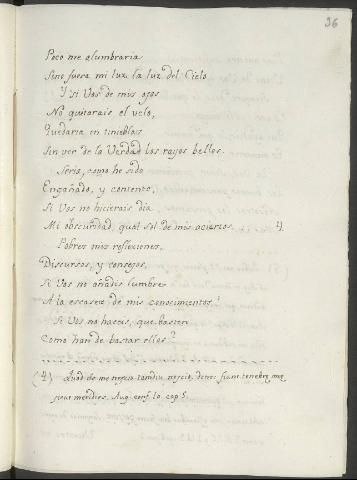 36
Poco me alumbraria
Sino fuera mi luz la luz del Cielo
Y si Vos de mis ojos
No quitarais el velo,
Quedaria en tinieblas
Sin ver de la Verdad los rayos bellos.
Seria, como he sido
Engañado, y contento,
Si Vos no hicierais dia
Mi obscuridad, qual sol de mis aciertos. 4)
Pobres mis reflexiones,
Discursos, y consejos,
Si Vos no añadis lumbre
A la escasez de mis conocimientos!
Si Vos no haceis, que basten
Como han de bastar ellos?
(4) Quod de me nescio tamdiu nescio, donec fiant tenebræ meæ
sicut meridies. Aug. conf. 10. cap 5.